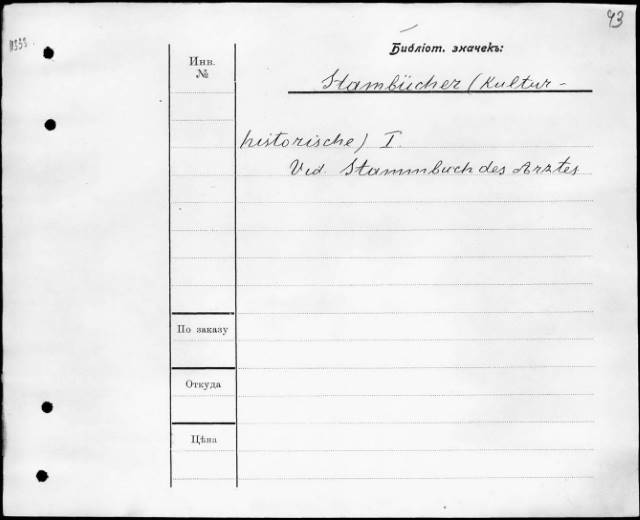 43
Библіот. значекъ:
Инв.
№
Stambücher (Kultur-
historische) I.
Vid. Stammbuch des Arztes
По заказу
Откуда
Цѣна